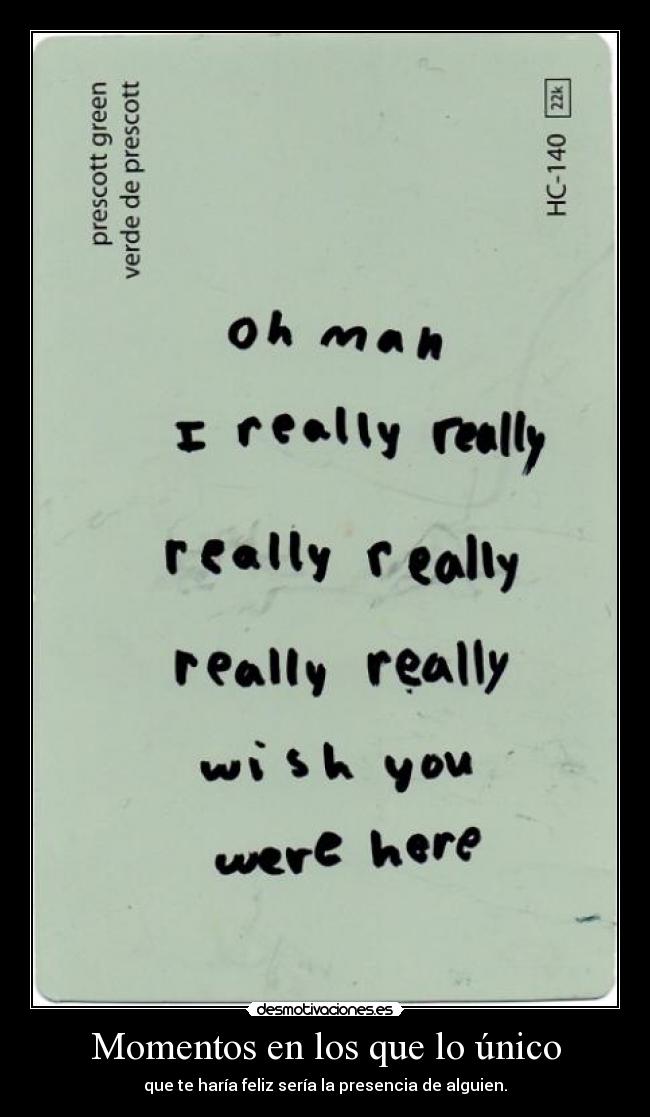 prescott green
verde de prescott
HC-140 22k
oh man
I really really
really really
really really
wish you
were here
desmotivaciones.es
Momentos en los que lo único
que te haría feliz sería la presencia de alguien.